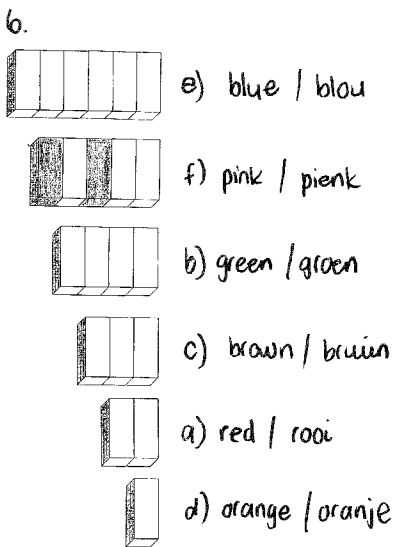 6.
e) blue / blou
f) pink / pienk
b) green / groen
c) brown / bruin
a) red / rooi
d) orange / oranje